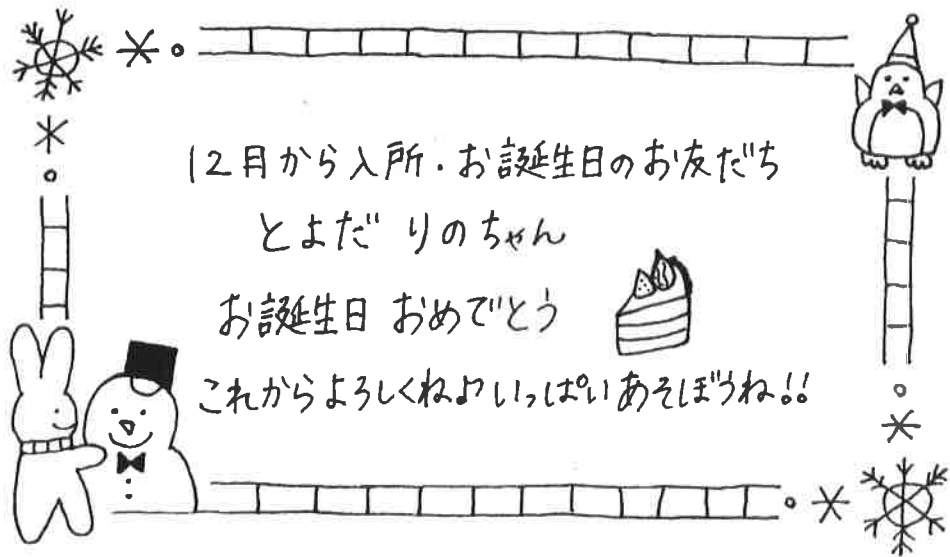 12月から入所・お誕生日のお友だち
とよだ りのちゃん
お誕生日 おめでとう
これからよろしくね♪いっぱいあそぼうね!!